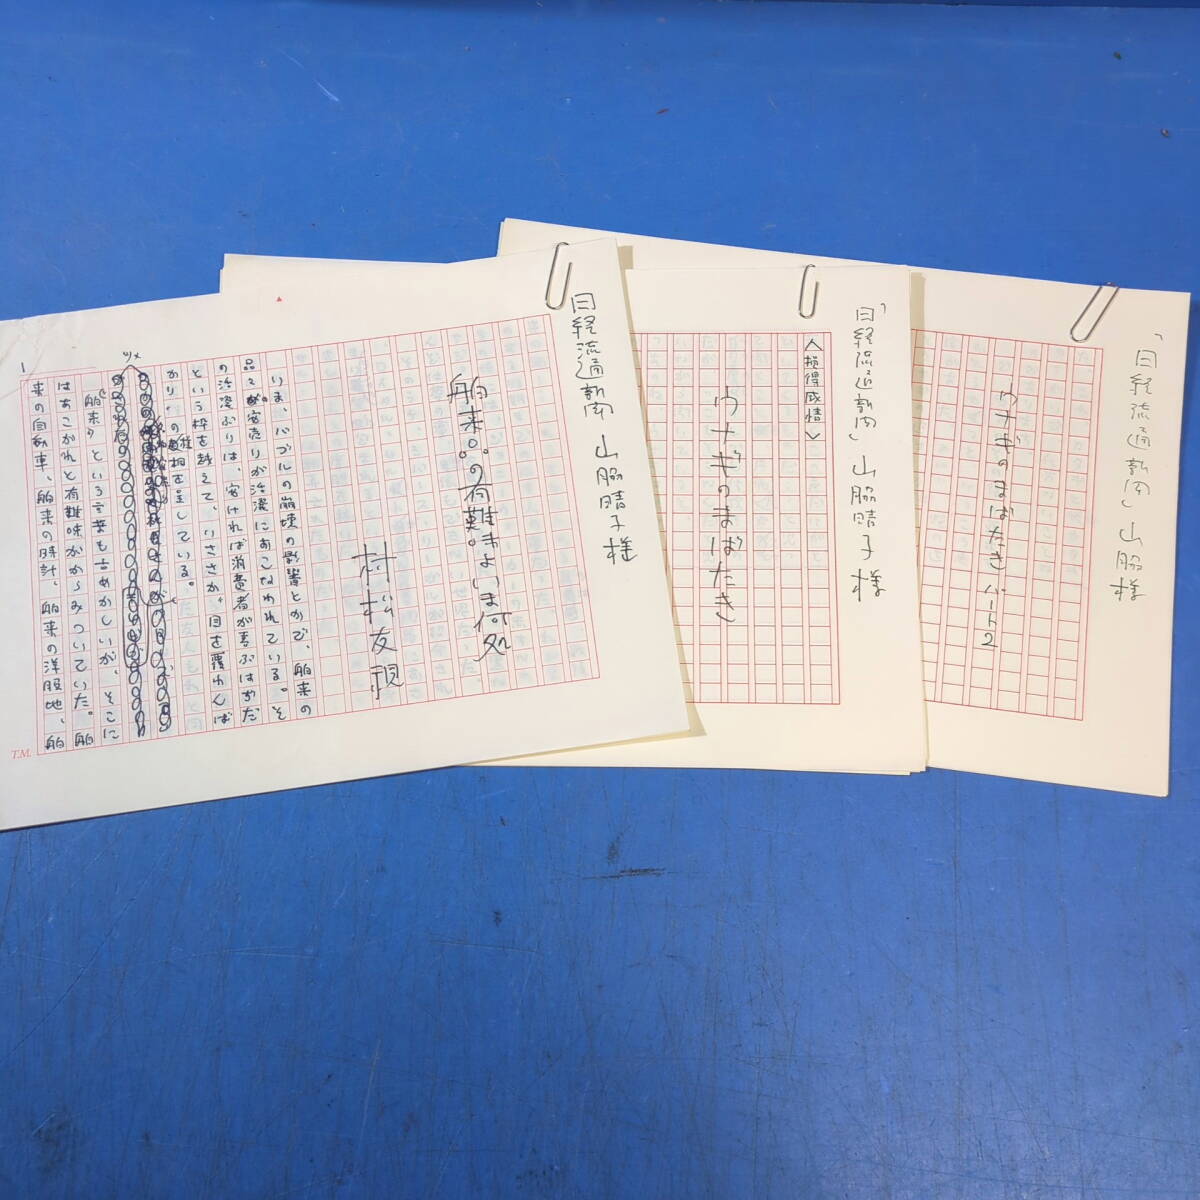 日経流通新聞 山脇晴子様
舶来。の有難。よいま何処
村松友視
いま、バブルの崩壊の影響とかで、舶来の
品々が安売りが活溌におこなわれている。そ
の活溌ぶりは、安ければ消費者が喜ぶはずだ
という枠を越えて、いささか目を覆わんば
かり。の種相を呈している。
舶来〉という言葉も古めかしいが、そこに
はあこがれと有難味がからみついていた。舶
来の自動車、舶来の時計、舶来の洋服地、舶
1
ツメ
T.M.
「日経流通新聞」山脇晴子様
〈損得感情〉
ウナギのまばたき
「日経流通新聞」山脇様
ウナギのまばたき パート2